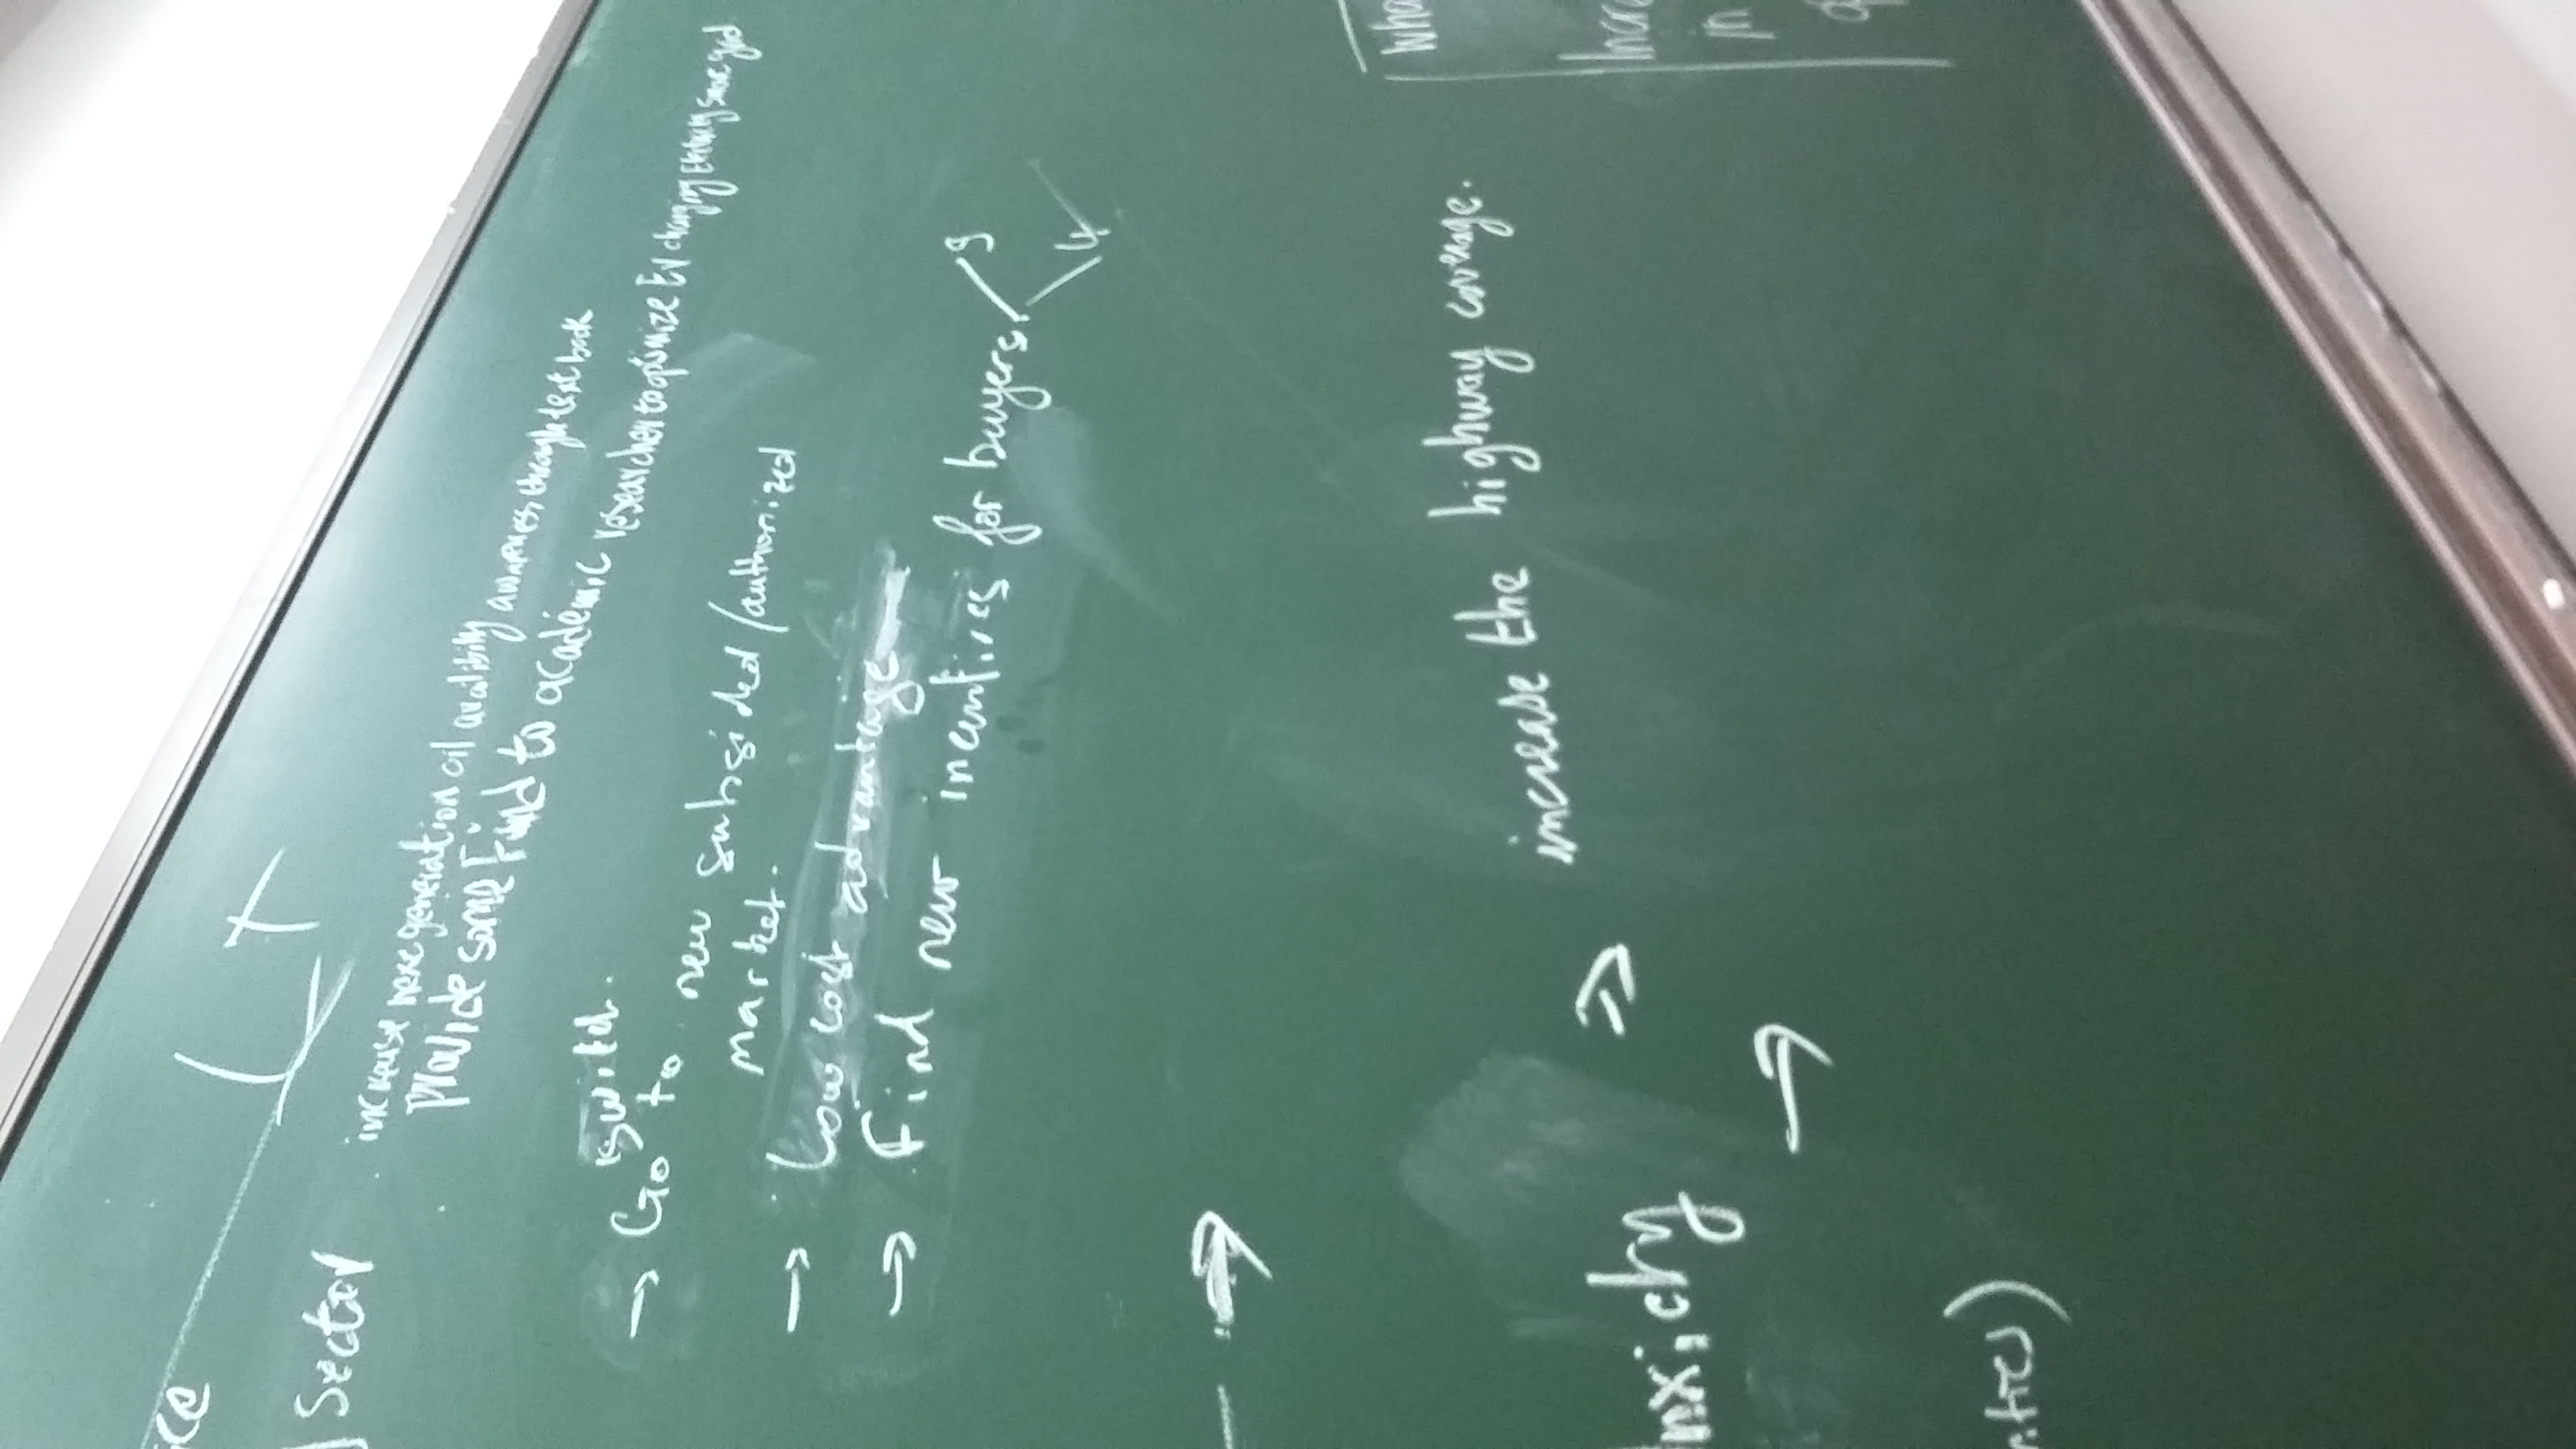 LT
Sector
increase next generation oil availibility awareness through text book
Provide some Fund to academic researcher to optimize EV charging Electricity smart grid
switch.
→ Go to new subsided/authorized
market.
→ Low cost advantage
→ Find new incentives for buyers.
4
increase the highway coverage.
in